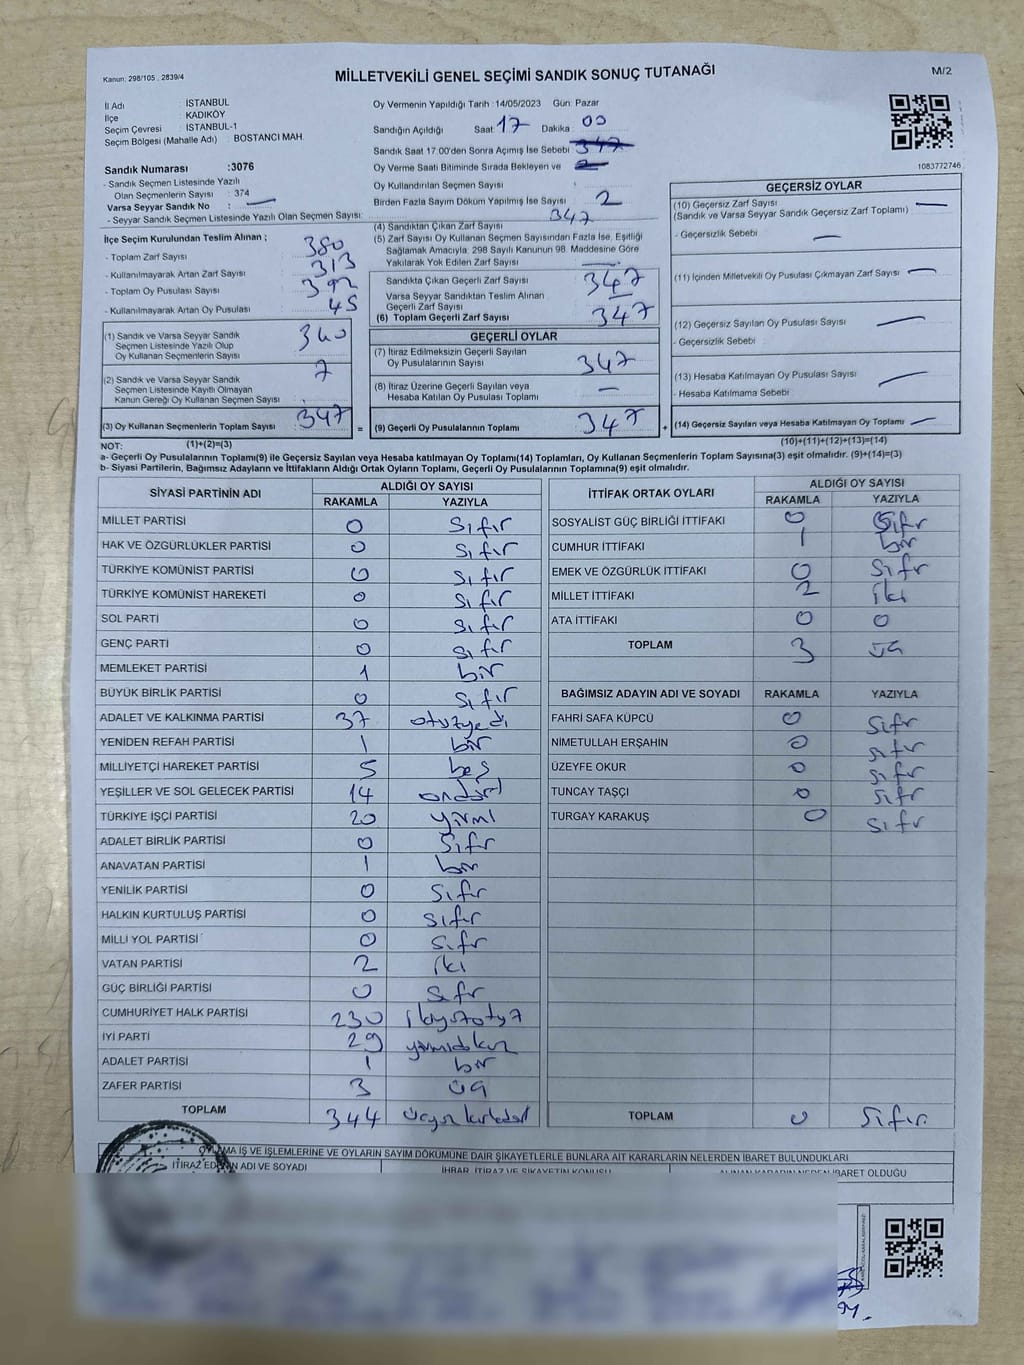 Kanun. 298/105 , 2839/4
MİLLETVEKİLİ GENEL SEÇİMİ SANDIK SONUÇ TUTANAĞI
M/2
İl Adı : İSTANBUL
İlçe : KADIKÖY
Seçim Çevresi : İSTANBUL-1
Seçim Bölgesi (Mahalle Adı) : BOSTANCI MAH.
Oy Vermenin Yapıldığı Tarih :14/05/2023 Gün: Pazar
Sandığın Açıldığı Saat 17 Dakika 00
Sandık Saat 17.00'den Sonra Açımış İse Sebebi 347
Oy Verme Saati Bitiminde Sırada Bekleyen ve
Oy Kullandırılan Seçmen Sayısı
Birden Fazla Sayım Döküm Yapılmış İse Sayısı 2
1083772746
Sandık Numarası :3076
- Sandık Seçmen Listesinde Yazılı
Olan Seçmenlerin Sayısı : 374
Varsa Seyyar Sandık No : —
- Seyyar Sandık Seçmen Listesinde Yazılı Olan Seçmen Sayısı
İlçe Seçim Kurulundan Teslim Alınan ;
- Toplam Zarf Sayısı 380
- Kullanılmayarak Artan Zarf Sayısı 313
- Toplam Oy Pusulası Sayısı 392
- Kullanılmayarak Artan Oy Pusulası 45
(1) Sandık ve Varsa Seyyar Sandık
Seçmen Listesinde Yazılı Olup
Oy Kullanan Seçmenlerin Sayısı 340
(2) Sandık ve Varsa Seyyar Sandık
Seçmen Listesinde Kayıtlı Olmayan
Kanun Gereği Oy Kullanan Seçmen Sayısı 7
(3) Oy Kullanan Seçmenlerin Toplam Sayısı : 347 =
(4) Sandıktan Çıkan Zarf Sayısı 347
(5) Zarf Sayısı Oy Kullanan Seçmen Sayısından Fazla İse, Eşitliği
Sağlamak Amacıyla, 298 Sayılı Kanunun 98. Maddesine Göre
Yakılarak Yok Edilen Zarf Sayısı —
Sandıkta Çıkan Geçerli Zarf Sayısı 347
Varsa Seyyar Sandıktan Teslim Alınan
Geçerli Zarf Sayısı —
(6) Toplam Geçerli Zarf Sayısı 347
GEÇERLİ OYLAR
(7) İtiraz Edilmeksizin Geçerli Sayılan
Oy Pusulalarının Sayısı 347
(8) İtiraz Üzerine Geçerli Sayılan veya
Hesaba Katılan Oy Pusulası Toplamı —
(9) Geçerli Oy Pusulalarının Toplamı 347 +
GEÇERSİZ OYLAR
(10) Geçersiz Zarf Sayısı —
(Sandık ve Varsa Seyyar Sandık Geçersiz Zarf Toplamı)
- Geçersizlik Sebebi —
(11) İçinden Milletvekili Oy Pusulası Çıkmayan Zarf Sayısı —
(12) Geçersiz Sayılan Oy Pusulası Sayısı —
- Geçersizlik Sebebi
(13) Hesaba Katılmayan Oy Pusulası Sayısı —
- Hesaba Katılmama Sebebi
(14) Geçersiz Sayılan veya Hesaba Katılmayan Oy Toplamı —
NOT: (1)+(2)=(3) (10)+(11)+(12)+(13)=(14)
a- Geçerli Oy Pusulalarının Toplamı(9) ile Geçersiz Sayılan veya Hesaba Katılmayan Oy Toplamı(14) Toplamları, Oy Kullanan Seçmenlerin Toplam Sayısına(3) eşit olmalıdır. (9)+(14)=(3)
b- Siyasi Partilerin, Bağımsız Adayların ve İttifakların Aldığı Ortak Oyların Toplamı, Geçerli Oy Pusulalarının Toplamına(9) eşit olmalıdır.
SİYASİ PARTİNİN ADI ALDIĞI OY SAYISI
RAKAMLA YAZIYLA
MİLLET PARTİSİ 0 sıfır
HAK VE ÖZGÜRLÜKLER PARTİSİ 0 sıfır
TÜRKİYE KOMÜNİST PARTİSİ 0 sıfır
TÜRKİYE KOMÜNİST HAREKETİ 0 sıfır
SOL PARTİ 0 sıfır
GENÇ PARTİ 0 sıfır
MEMLEKET PARTİSİ 1 bir
BÜYÜK BİRLİK PARTİSİ 0 sıfır
ADALET VE KALKINMA PARTİSİ 37 otuzyedi
YENİDEN REFAH PARTİSİ 1 bir
MİLLİYETÇİ HAREKET PARTİSİ 5 beş
YEŞİLLER VE SOL GELECEK PARTİSİ 14 ondört
TÜRKİYE İŞÇİ PARTİSİ 20 yirmi
ADALET BİRLİK PARTİSİ 0 sıfır
ANAVATAN PARTİSİ 1 bir
YENİLİK PARTİSİ 0 sıfır
HALKIN KURTULUŞ PARTİSİ 0 sıfır
MİLLİ YOL PARTİSİ 0 sıfır
VATAN PARTİSİ 2 iki
GÜÇ BİRLİĞİ PARTİSİ 0 sıfr
CUMHURİYET HALK PARTİSİ 230
İYİ PARTİ 29 yirmidokuz
ADALET PARTİSİ 1 bir
ZAFER PARTİSİ 3 üç
TOPLAM 344
İTTİFAK ORTAK OYLARI ALDIĞI OY SAYISI
RAKAMLA YAZIYLA
SOSYALİST GÜÇ BİRLİĞİ İTTİFAKI 0 Sıfr
CUMHUR İTTİFAKI 1 bir
EMEK VE ÖZGÜRLÜK İTTİFAKI 0 sıfr
MİLLET İTTİFAKI 2 iki
ATA İTTİFAKI 0 0
TOPLAM 3 üç
BAĞIMSIZ ADAYIN ADI VE SOYADI RAKAMLA YAZIYLA
FAHRİ SAFA KÜPCÜ 0 sıfr
NİMETULLAH ERŞAHİN 0 sıfr
ÜZEYFE OKUR 0 sıfr
TUNCAY TAŞÇI 0 sıfr
TURGAY KARAKUŞ 0 sıfr
TOPLAM 0 sıfır
OYLAMA İŞ VE İŞLEMLERİNE VE OYLARIN SAYIM DÖKÜMÜNE DAİR ŞİKAYETLERLE BUNLARA AİT KARARLARIN NELERDEN İBARET BULUNDUKLARI
İTİRAZ EDENİN ADI VE SOYADI İHBAR, İTİRAZ VE ŞİKAYETİN KONUSU ALINAN KARARIN NEDEN İBARET OLDUĞU